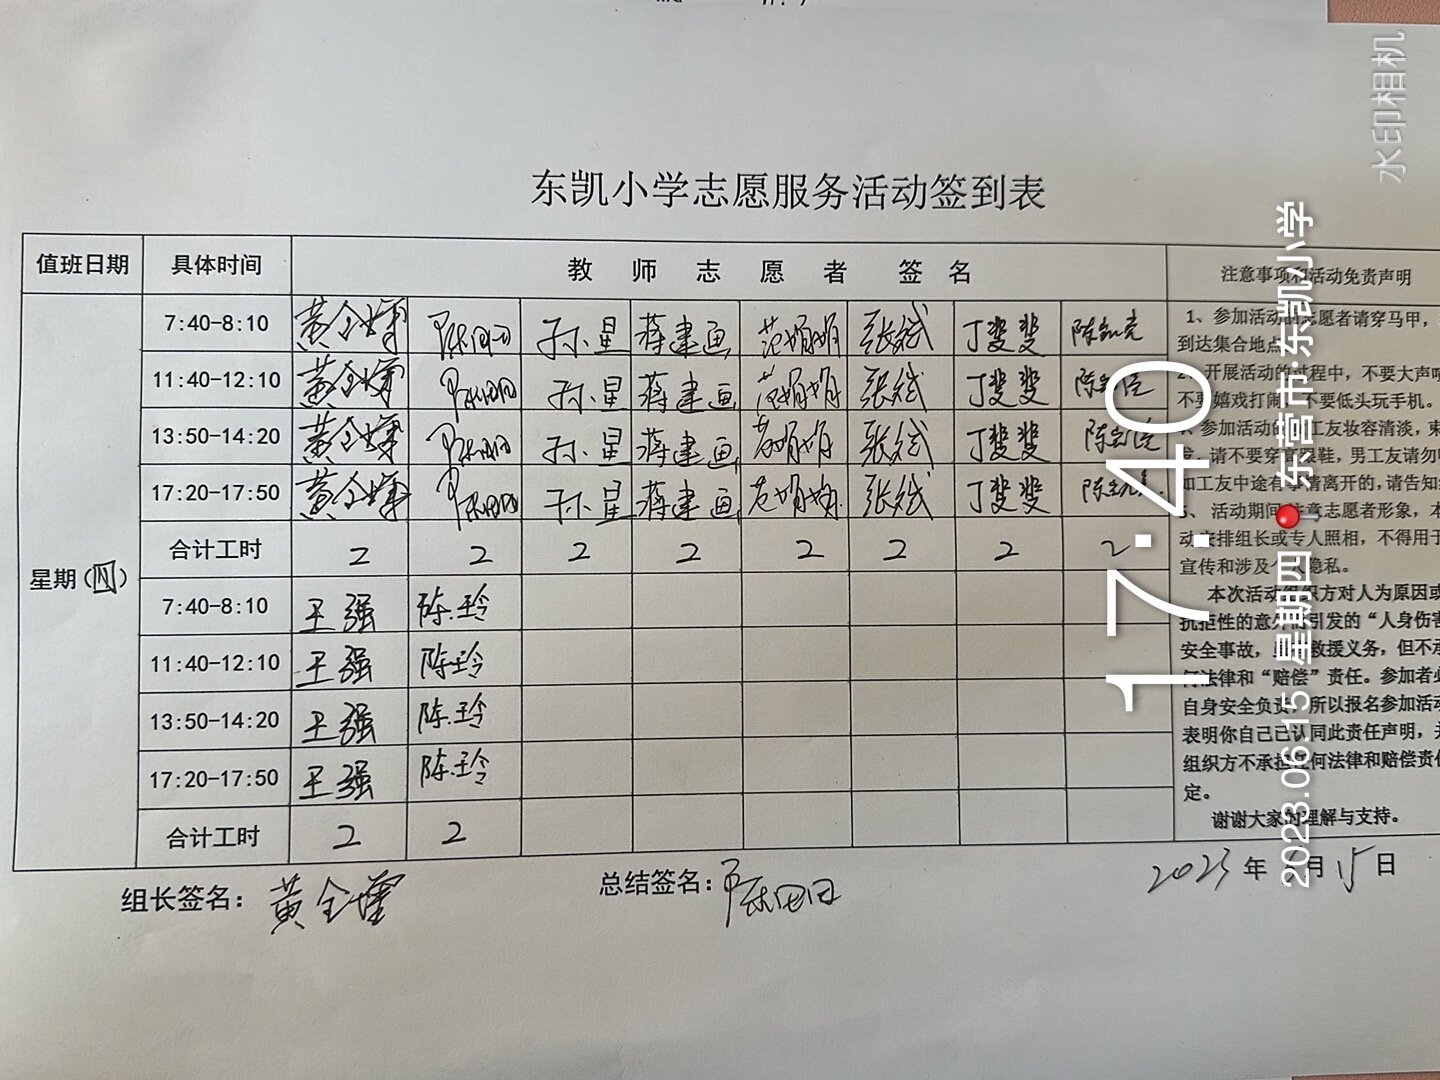 东凯小学志愿服务活动签到表
值班日期 具体时间 教师志愿者签名 注意事项和活动免责声明
星期(四)
7:40-8:10 孙星 蒋建画 范娟娟 张斌 丁斐斐
11:40-12:10 孙星 蒋建画 范娟娟 张斌 丁斐斐
13:50-14:20 孙星 蒋建画 范娟娟 张斌 丁斐斐
17:20-17:50 孙星 蒋建画 范娟娟 张斌 丁斐斐
合计工时 2 2 2 2 2 2 2 2
7:40-8:10 王强 陈玲
11:40-12:10 王强 陈玲
13:50-14:20 王强 陈玲
17:20-17:50 王强 陈玲
合计工时 2 2
1、参加活动的志愿者请穿马甲,
到达集合地点
开展活动的过程中,不要大声
不要嬉戏打闹,不要低头玩手机。
参加活动的 工友妆容清淡,
请不要穿 鞋,男工友请勿
如工友中途有事请离开的,请告知
活动期间 意志愿者形象,
动安排组长或专人照相,不得用于
宣传和涉及个人隐私。
本次活动组织方对人为原因或
抗拒性的意外 引发的“人身伤害
安全事故, 救援义务,但不承
何法律和“赔偿”责任。参加者
自身安全负责,所以报名参加活动
表明你自己已认同此责任声明,
组织方不承担任何法律和赔偿责任
定。
谢谢大家的理解与支持。
组长签名: 总结签名: 2023年 月15日
水印相机
17:40
2023.06.15 星期四 东营市·东凯小学